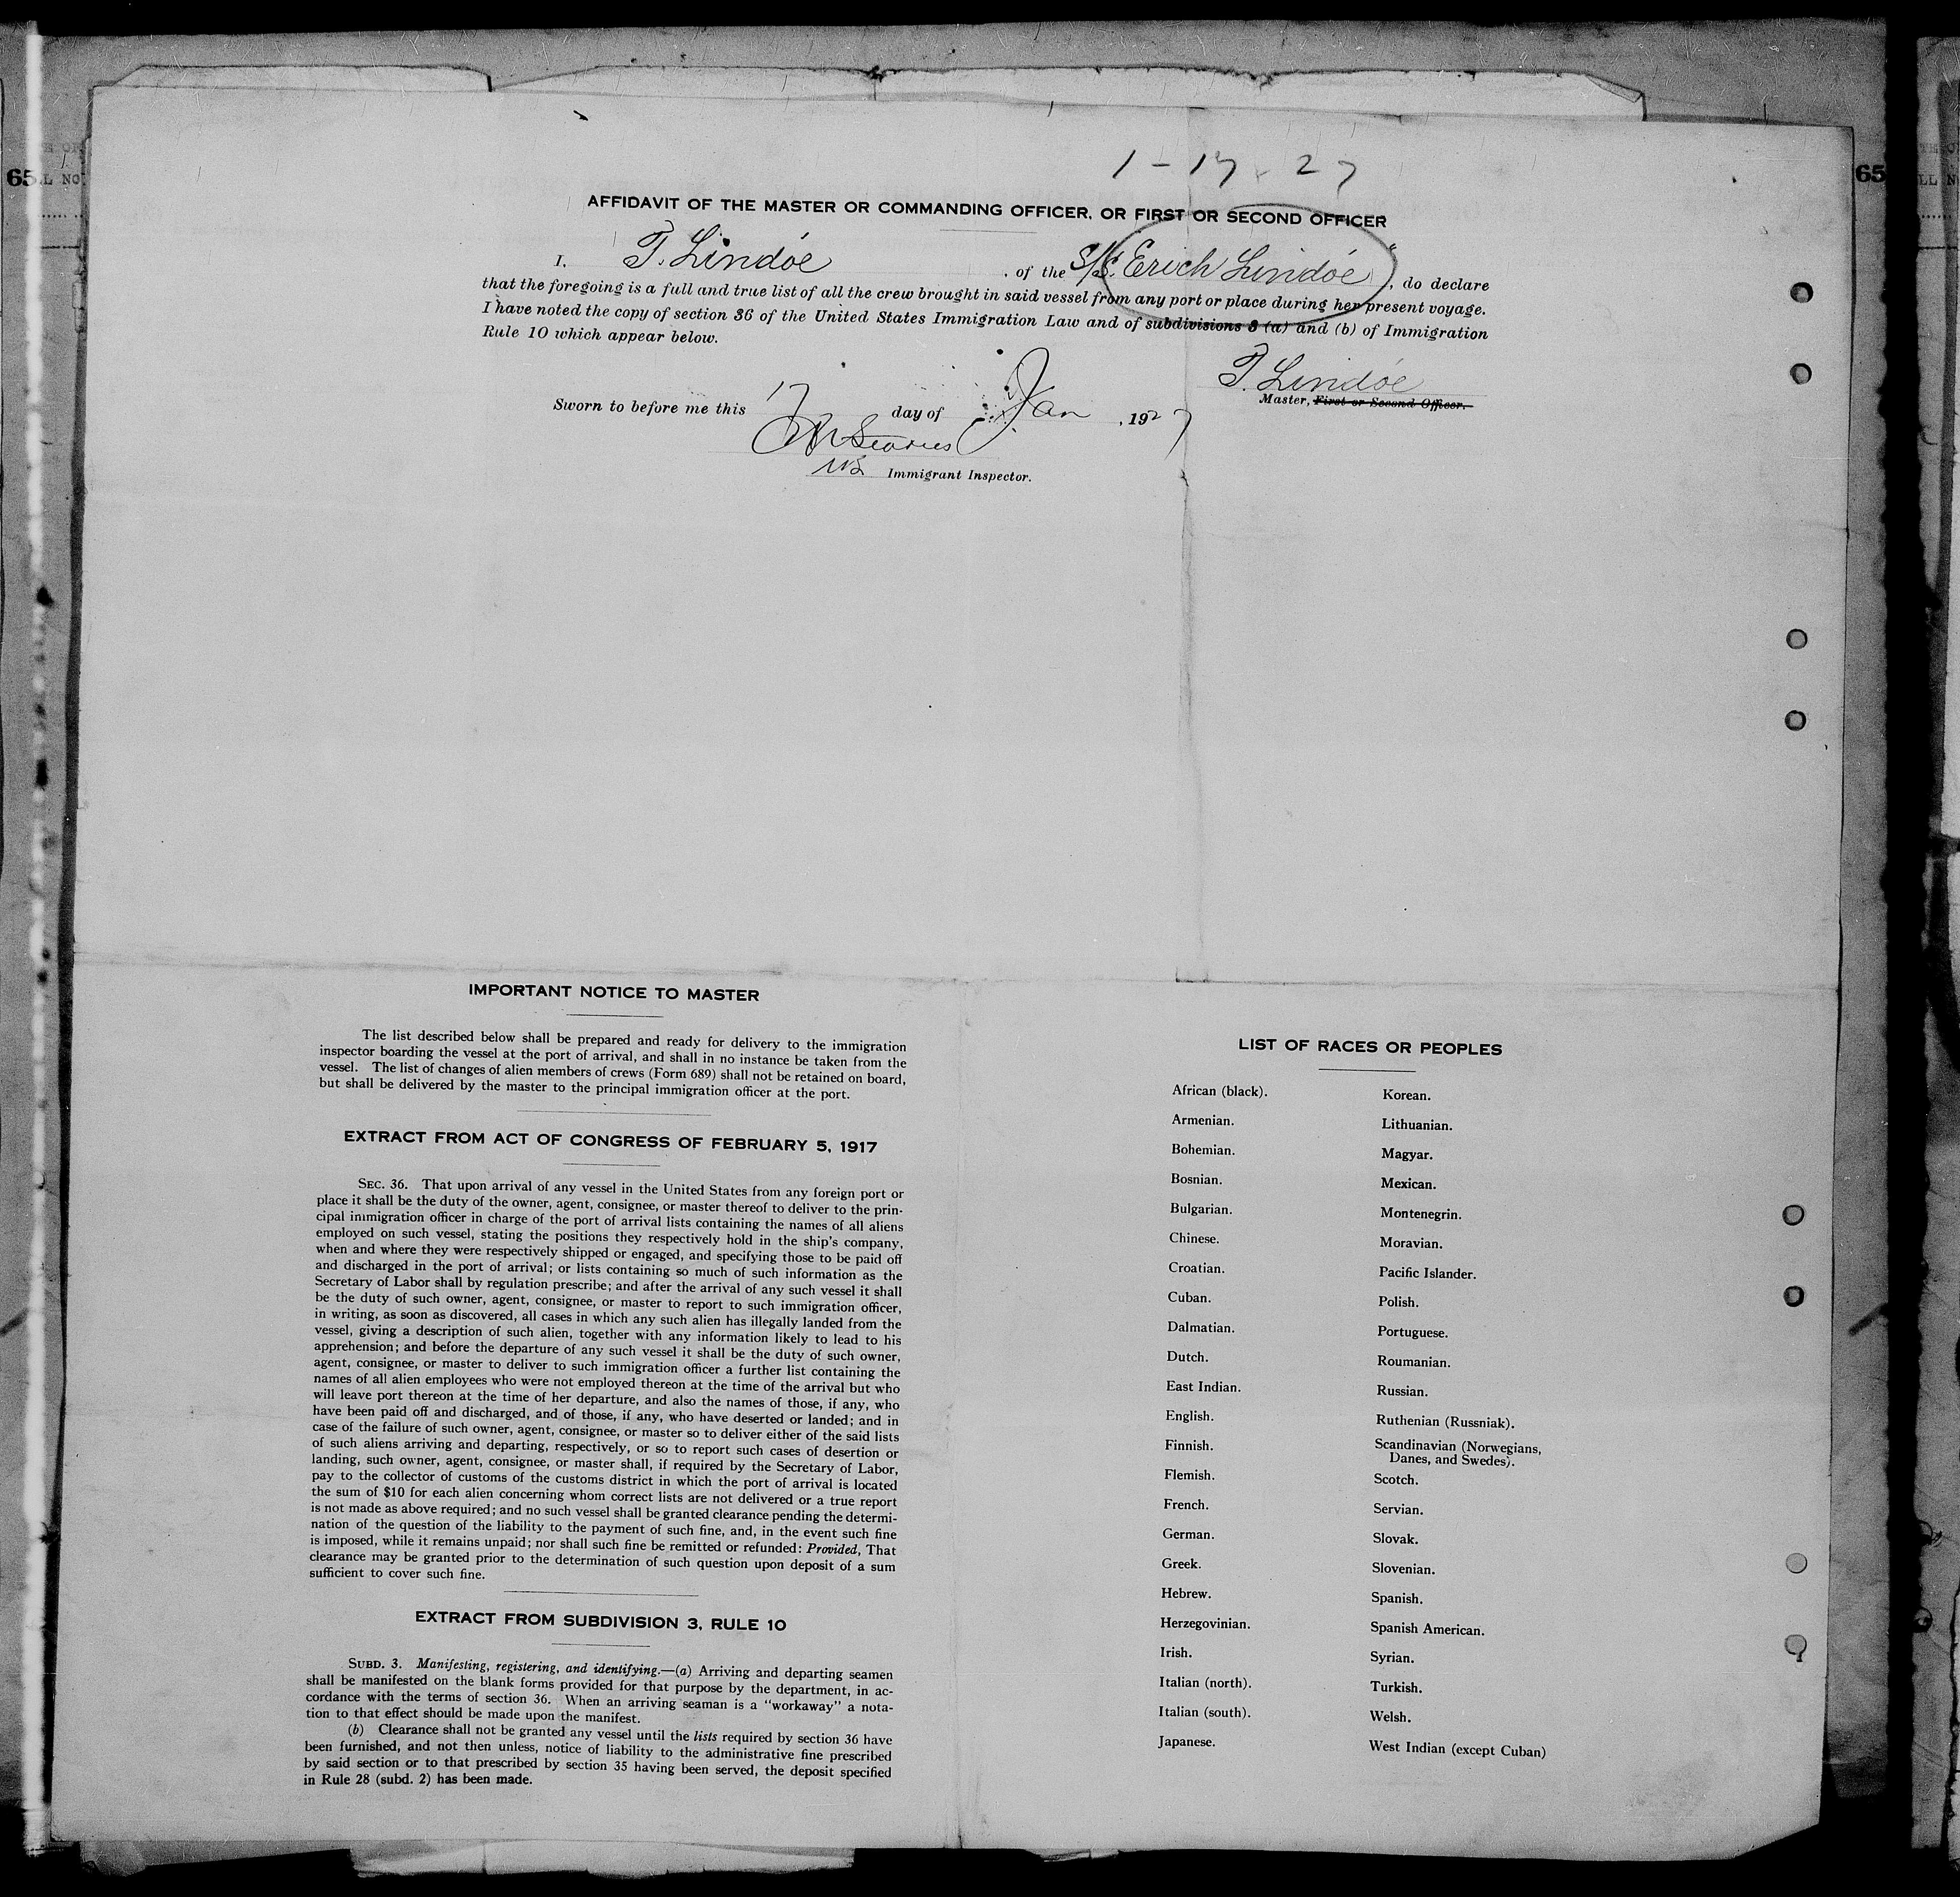 1 - 17 - 27
AFFIDAVIT OF THE MASTER OR COMMANDING OFFICER, OR FIRST OR SECOND OFFICER
I, T. Lindóe, of the S/S. Erich Lindóe", do declare
that the foregoing is a full and true list of all the crew brought in said vessel from any port or place during her present voyage.
I have noted the copy of section 36 of the United States Immigration Law and of subdivisions 3 (a) and (b) of Immigration
Rule 10 which appear below.
T. Lindóe
Master, First or Second Officer.
Sworn to before me this 17 day of Jan, 1927
Immigrant Inspector.
65
L NO
65
LL N
IMPORTANT NOTICE TO MASTER
The list described below shall be prepared and ready for delivery to the immigration
inspector boarding the vessel at the port of arrival, and shall in no instance be taken from the
vessel. The list of changes of alien members of crews (Form 689) shall not be retained on board,
but shall be delivered by the master to the principal immigration officer at the port.
EXTRACT FROM ACT OF CONGRESS OF FEBRUARY 5, 1917
SEC. 36. That upon arrival of any vessel in the United States from any foreign port or
place it shall be the duty of the owner, agent, consignee, or master thereof to deliver to the prin-
cipal immigration officer in charge of the port of arrival lists containing the names of all aliens
employed on such vessel, stating the positions they respectively hold in the ship's company,
when and where they were respectively shipped or engaged, and specifying those to be paid off
and discharged in the port of arrival; or lists containing so much of such information as the
Secretary of Labor shall by regulation prescribe; and after the arrival of any such vessel it shall
be the duty of such owner, agent, consignee, or master to report to such immigration officer,
in writing, as soon as discovered, all cases in which any such alien has illegally landed from the
vessel, giving a description of such alien, together with any information likely to lead to his
apprehension; and before the departure of any such vessel it shall be the duty of such owner,
agent, consignee, or master to deliver to such immigration officer a further list containing the
names of all alien employees who were not employed thereon at the time of the arrival but who
will leave port thereon at the time of her departure, and also the names of those, if any, who
have been paid off and discharged, and of those, if any, who have deserted or landed; and in
case of the failure of such owner, agent, consignee, or master so to deliver either of the said lists
of such aliens arriving and departing, respectively, or so to report such cases of desertion or
landing, such owner, agent, consignee, or master shall, if required by the Secretary of Labor,
pay to the collector of customs of the customs district in which the port of arrival is located
the sum of $10 for each alien concerning whom correct lists are not delivered or a true report
is not made as above required; and no such vessel shall be granted clearance pending the determi-
nation of the question of the liability to the payment of such fine, and, in the event such fine
is imposed, while it remains unpaid; nor shall such fine be remitted or refunded: Provided, That
clearance may be granted prior to the determination of such question upon deposit of a sum
sufficient to cover such fine.
EXTRACT FROM SUBDIVISION 3, RULE 10
SUBD. 3. Manifesting, registering, and identifying.—(a) Arriving and departing seamen
shall be manifested on the blank forms provided for that purpose by the department, in ac-
cordance with the terms of section 36. When an arriving seaman is a "workaway" a nota-
tion to that effect should be made upon the manifest.
(b) Clearance shall not be granted any vessel until the lists required by section 36 have
been furnished, and not then unless, notice of liability to the administrative fine prescribed
by said section or to that prescribed by section 35 having been served, the deposit specified
in Rule 28 (subd. 2) has been made.
LIST OF RACES OR PEOPLES
African (black).
Armenian.
Bohemian.
Bosnian.
Bulgarian.
Chinese.
Croatian.
Cuban.
Dalmatian.
Dutch.
East Indian.
English.
Finnish.
Flemish.
French.
German.
Greek.
Hebrew.
Herzegovinian.
Irish.
Italian (north).
Italian (south).
Japanese.
Korean.
Lithuanian.
Magyar.
Mexican.
Montenegrin.
Moravian.
Pacific Islander.
Polish.
Portuguese.
Roumanian.
Russian.
Ruthenian (Russniak).
Scandinavian (Norwegians,
Danes, and Swedes).
Scotch.
Servian.
Slovak.
Slovenian.
Spanish.
Spanish American.
Syrian.
Turkish.
Welsh.
West Indian (except Cuban)